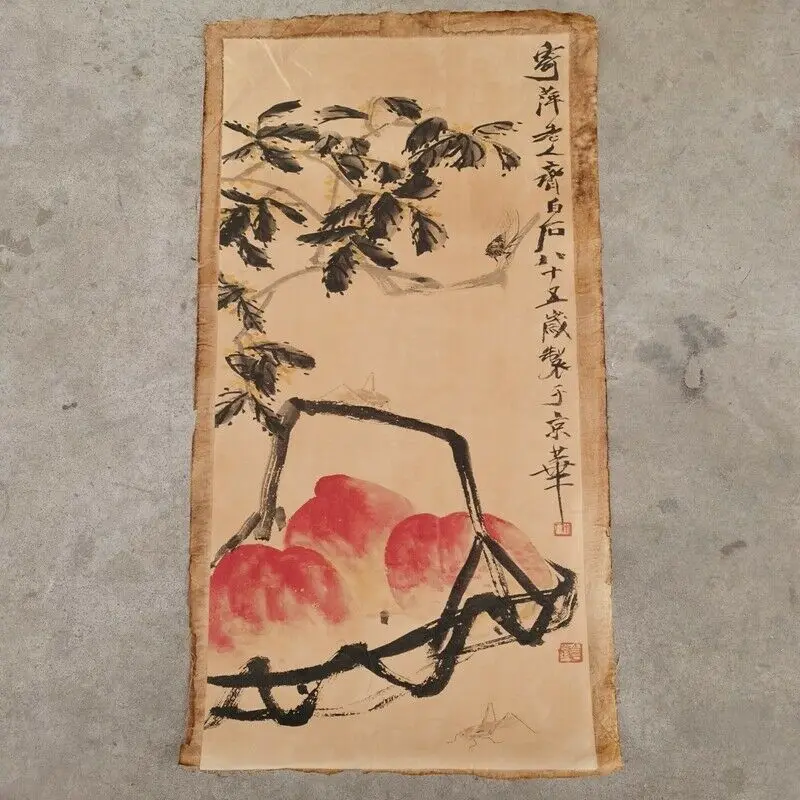 寄萍老人齊白石八十五歲製于京華